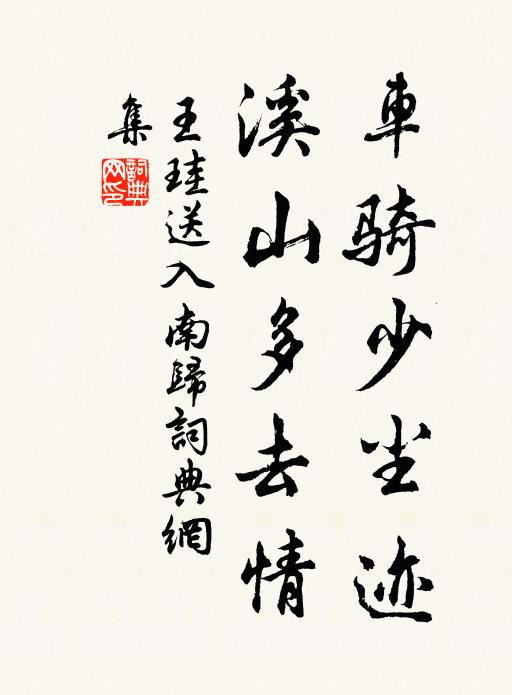 車骑少尘迹
溪山多去情
王珪送入南歸詞典網
集
詞典网印